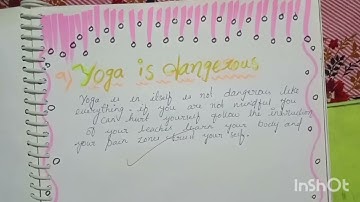 a) Yoga is dangerous
Yoga is in itself is not dangerous like
everything. if you are not mindful you
can hurt yourself follow the instruction
of your teacher learn your body and
your pain zones trust your self.
InShOt